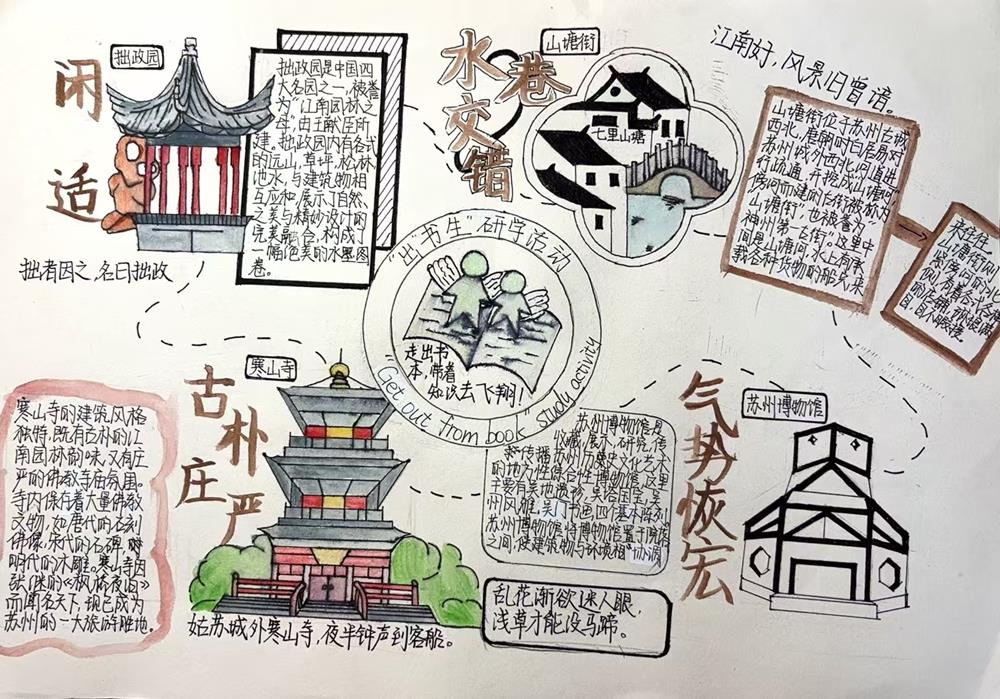 闲适
拙政园
拙政园是中国四
大名园之一,被誉
为“江南园林之
母”由王献臣所
建。拙政园内有各式
的远山,草坪,松林
池水,与建筑物相
互应和,展示了自然
之美与精妙设计的
完美融合,构成了
一幅绝美的水墨图
卷。
拙者因之,名曰拙政
水巷
交错
山塘街
七里山塘
江南好,风景旧曾谙。
山塘街位于苏州古城
西北,唐朝时白居易对
苏州城外西北河道进
行疏通,开挖成山塘河,
傍河而建的古街被称为
山塘街,也被誉为“
神州第一古街”。这里中
间是山塘河,水上有承
载各种货物的船只来
来往往。
山塘街
“出书生”研学活动
走出书
本,带着
知识去飞翔!
"Get out from book" study activity
寒山寺的建筑风格
独特,既有古朴的江
南园林韵味,又有庄
严的佛教寺庙氛围。
寺内保存着大量佛教
文物,如唐代的石刻
佛像,宋代的石碑,
明代的木雕。寒山寺因
张继的《枫桥夜泊》
而闻名天下,现已成为
苏州的一大旅游胜地。
古朴
庄严
寒山寺
姑苏城外寒山寺,夜半钟声到客船。
苏州博物馆是
收藏、展示、研究、传
播苏州历史文化艺术
的地方性综合性博物馆,这里
主要有吴地遗珍、吴塔国宝、吴
州风雅、吴门书画四个基本陈列
苏州博物馆将博物馆置于院落
之间,使建筑物与环境相“协调
乱花渐欲迷人眼,
浅草才能没马蹄。
气势恢宏
苏州博物馆